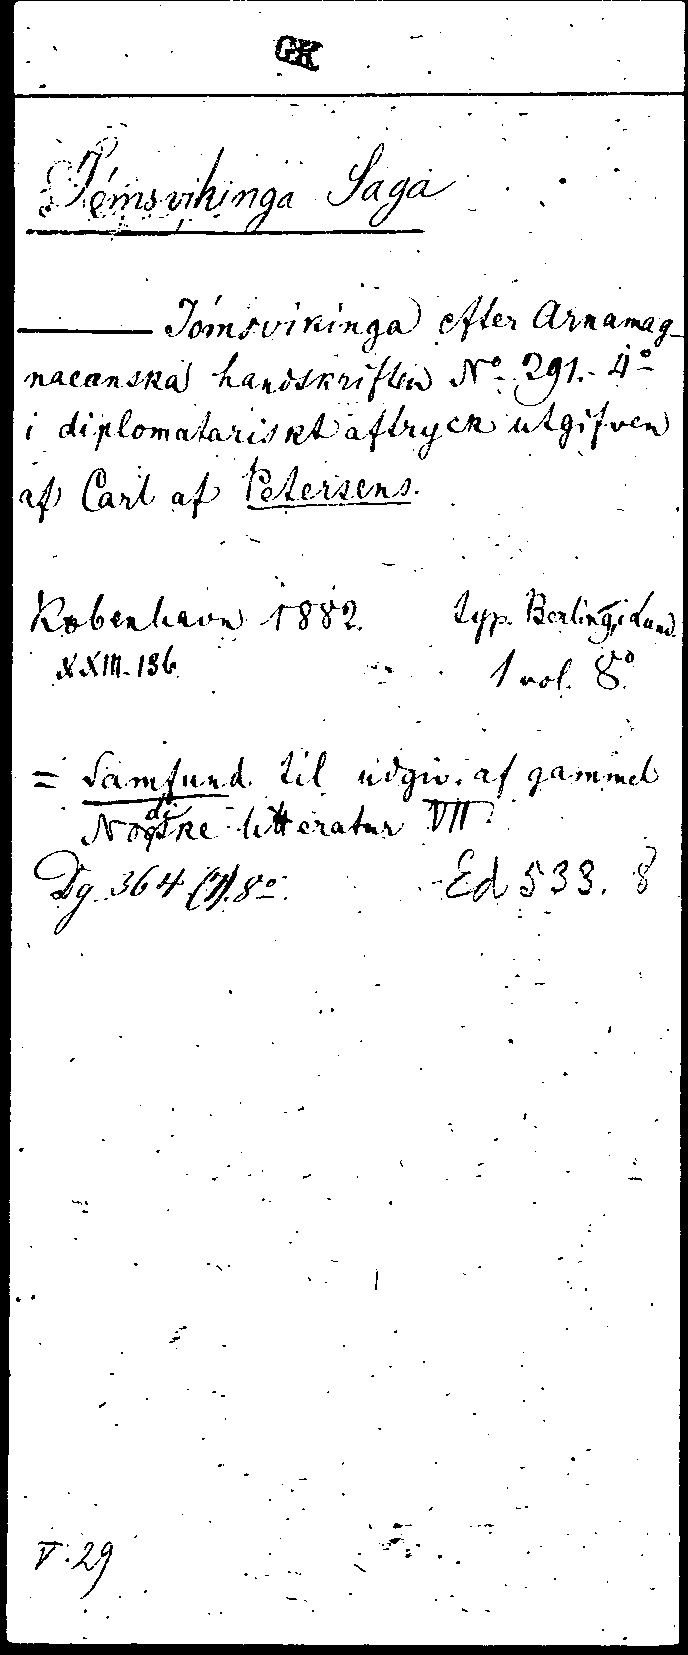 GK
Jómsvikinga Saga
——— Jómsvikinga efter Arnamag-
naeanska handskriften No. 291. 4o
i diplomatariskt aftryck utgifven
af Carl af Petersens.
København 1882. typ. Berling, i Lund.
XXIII-136. 1 vol. 8o.
= Samfund til udgiv. af gammel
Nordiske litteratur VII
Dg. 364 (7). 8o. Ed 533. 8
V. 29